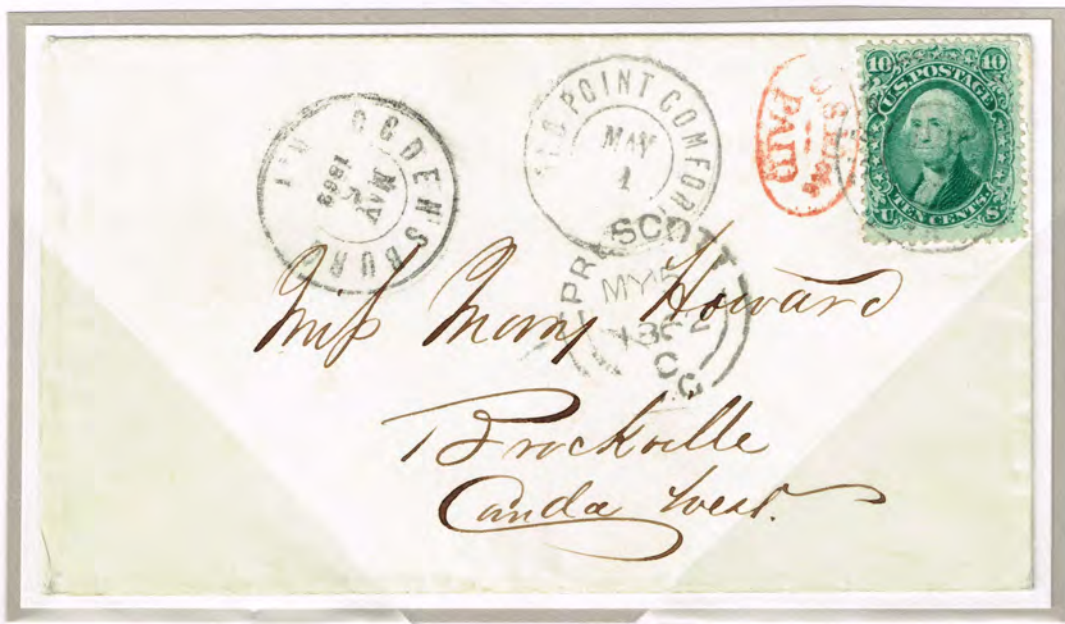 OGDENSBURG
MAY
5
1862
POINT COMFORT
MAY
1
U.S.
PAID
10 10
U.S. POSTAGE
TEN CENTS.
U S
PRESCOTT
MY 5
Miss Mary Howard
Brockville
Canda West.